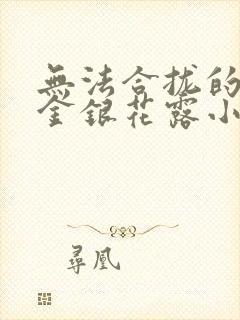 無法合拢的
金銀花露小
尋凰